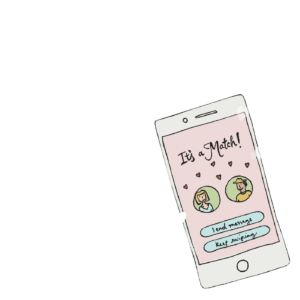 It's a Match!
Send message
Keep swiping